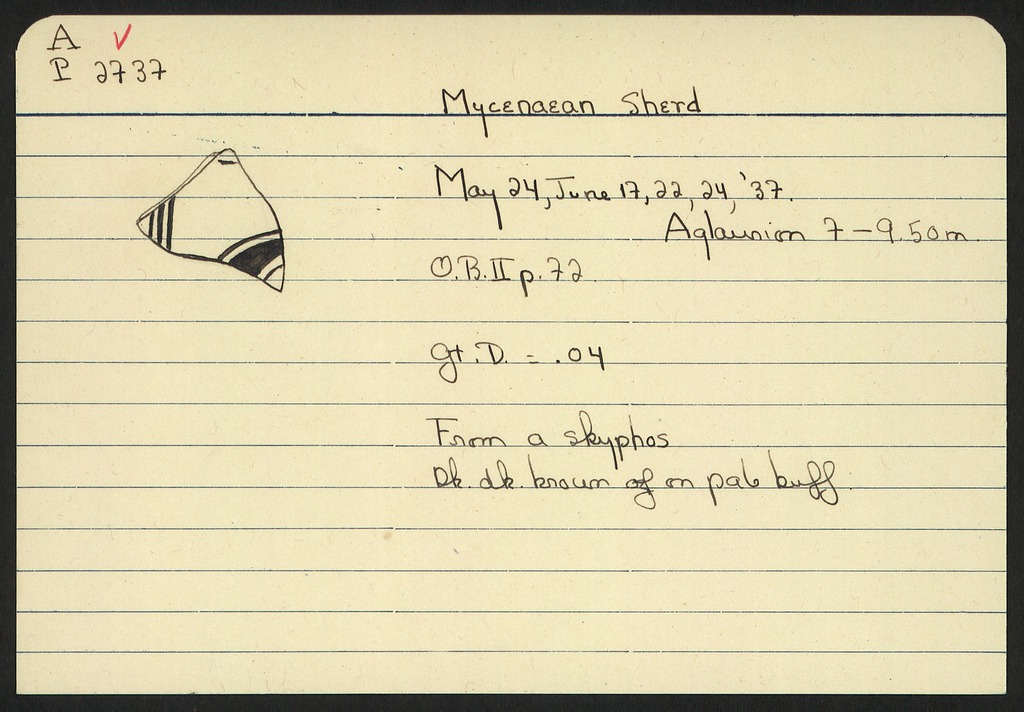 A ✓
P 2737
Mycenaean Sherd
May 24, June 17, 22, 24, '37.
Aglaurion 7 – 9.50 m
O.B. II p. 72
Gt. D. = .04
From a skyphos
Dk. dk. brown of on pale buff.